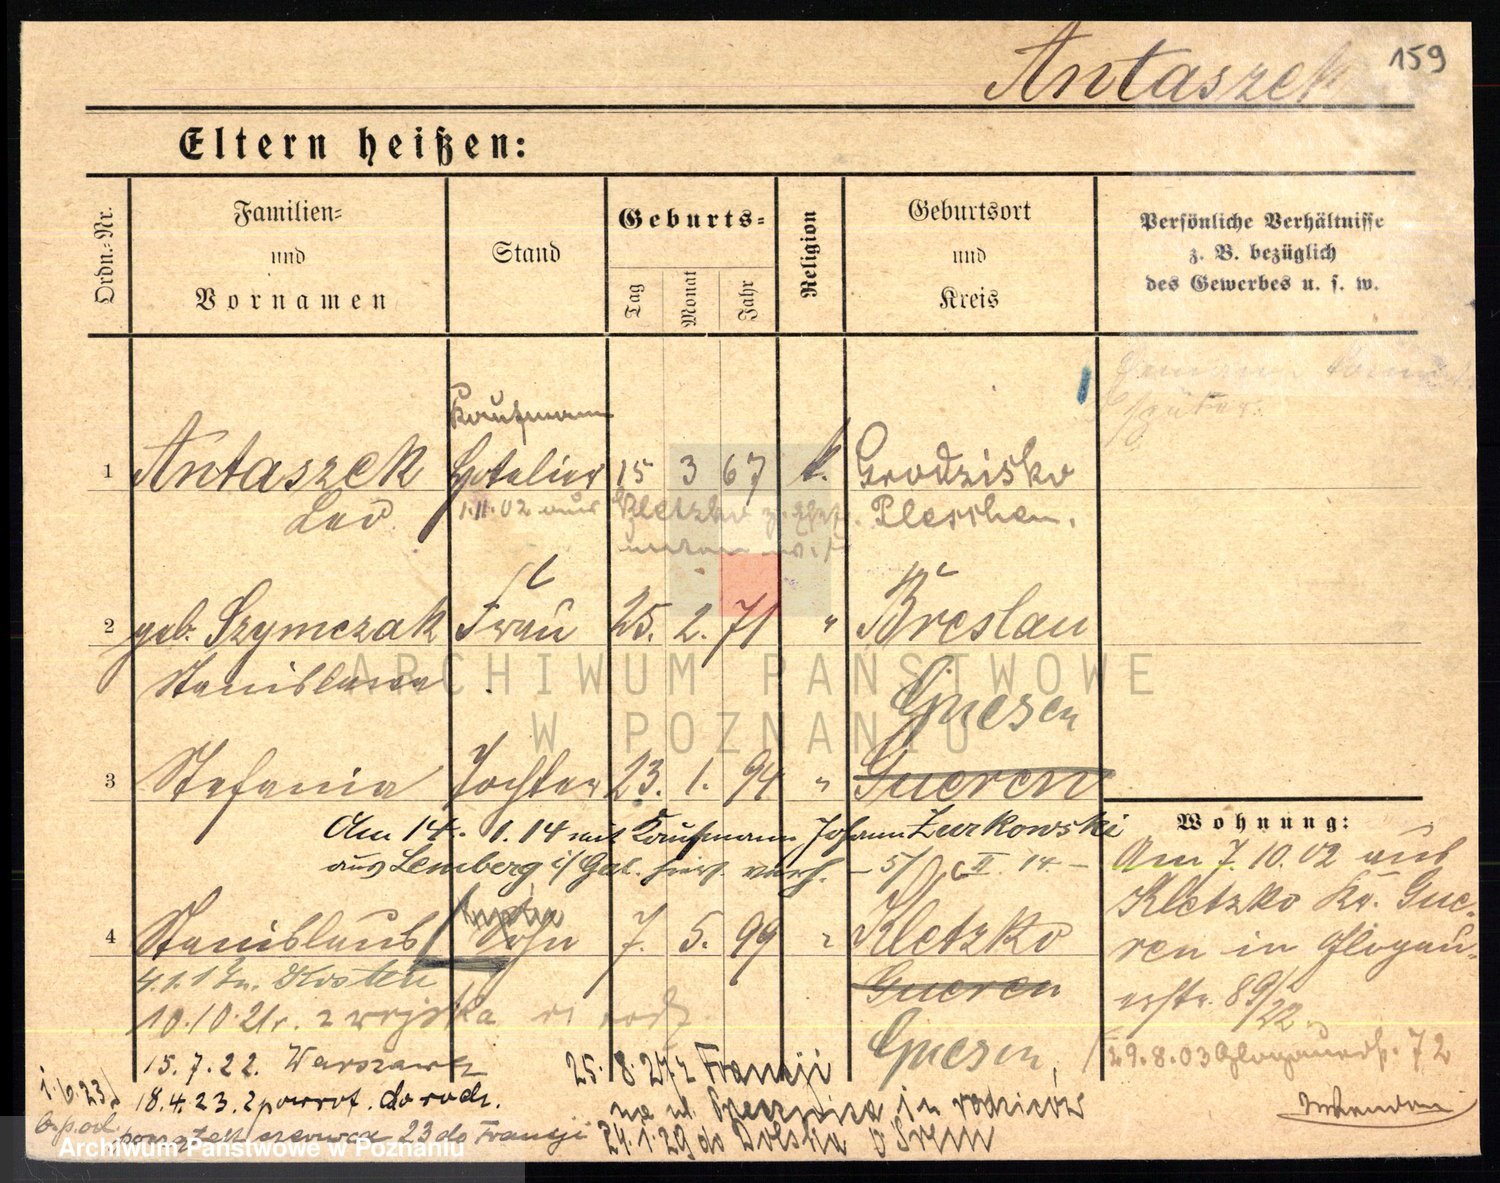 Antaszek 159
Eltern heißen:
Ordn.-Nr.
Familien-
und
Vornamen
Stand
Geburts-
Tag
Monat
Jahr
Religion
Geburtsort
und
Kreis
Persönliche Verhältnisse
z. B. bezüglich
des Gewerbes u. s. w.
Kaufmann
1 Antaszek 15 3 67 k. Grodzisko
Leo 1.11.02 aus Kletzko Pleschen.
2 geb. Szymczak Frau 25. 2. 71 " Breslau
Stanislawa
Gnesen
3 Stefania Tochter 23. 1. 94 " Gnesen
Am 14. 1. 14 mit Kaufmann Johann Zurkowski
aus Lemberg i/Gal. verh. 14
4 Stanislaus Sohn 7. 5. 99 " Kletzko
Gnesen
Kosten
10.10.21 z wojska
Gnesen
15.7.22. Warszawa
1.6.23
18.4.23. z powrot. do rodz.
czerwca 23 do Francji
25. 8. 27 z Francji
na ul. rodziców
24.1.29 do Dolska
Wohnung:
Am 7.10.02 aus
Kletzko Kr. Gne-
sen in Glogau-
erstr. 89/
22
29.8.03 Glogauerstr. 72
ARCHIWUM PAŃSTWOWE
W POZNANIU
Archiwum Państwowe w Poznaniu